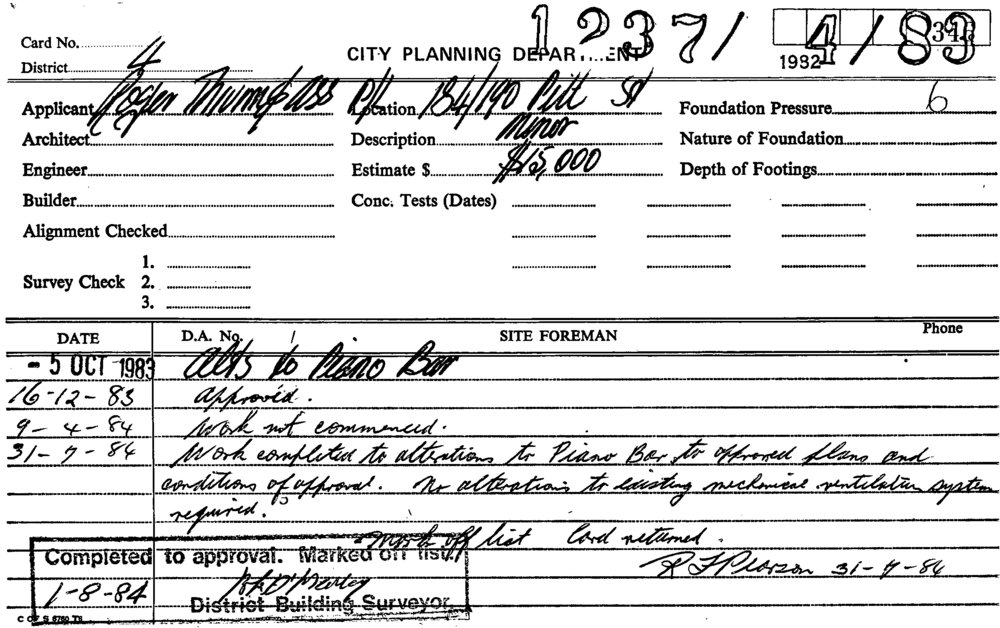 1237/4/83
Card No.
CITY PLANNING DEPARTMENT 1982
District 4
Applicant Roger & Ass P/L Location 184/190 Pitt St Foundation Pressure 6
Architect Description Minor Nature of Foundation
Engineer Estimate $ $15,000 Depth of Footings
Builder Conc. Tests (Dates)
Alignment Checked
1.
Survey Check 2.
3.
DATE D.A. No. SITE FOREMAN Phone
- 5 OCT 1983 Alts to Piano Bar
16-12-83 Approved.
9-4-84 Work not commenced.
31-7-84 Work completed to alterations to Piano Bar to approved plans and
conditions of approval. No alterations to existing mechanical ventilation system
required.
Mark off list Card returned.
R F Pearson 31-7-84
Completed to approval. Marked off list.
1-8-84
District Building Surveyor